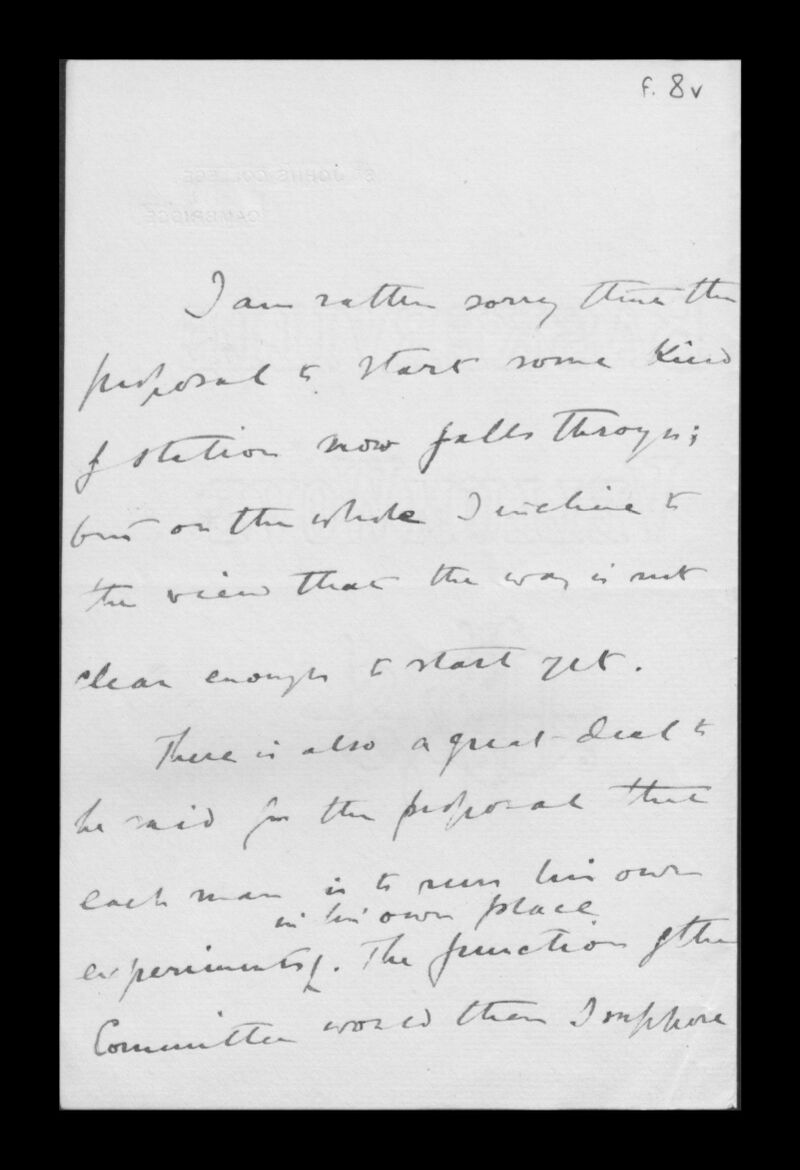 f. 8v
ST JOHN'S COLLEGE
CAMBRIDGE
I am rather sorry that the
proposal to start some kind
of station now falls through;
but on the whole I incline to
the view that the way is not
clear enough to start yet.
There is also a great deal to
be said for the proposal that
each man is to run his own
in his own place
experiments. The function of the
Committee would then I suppose